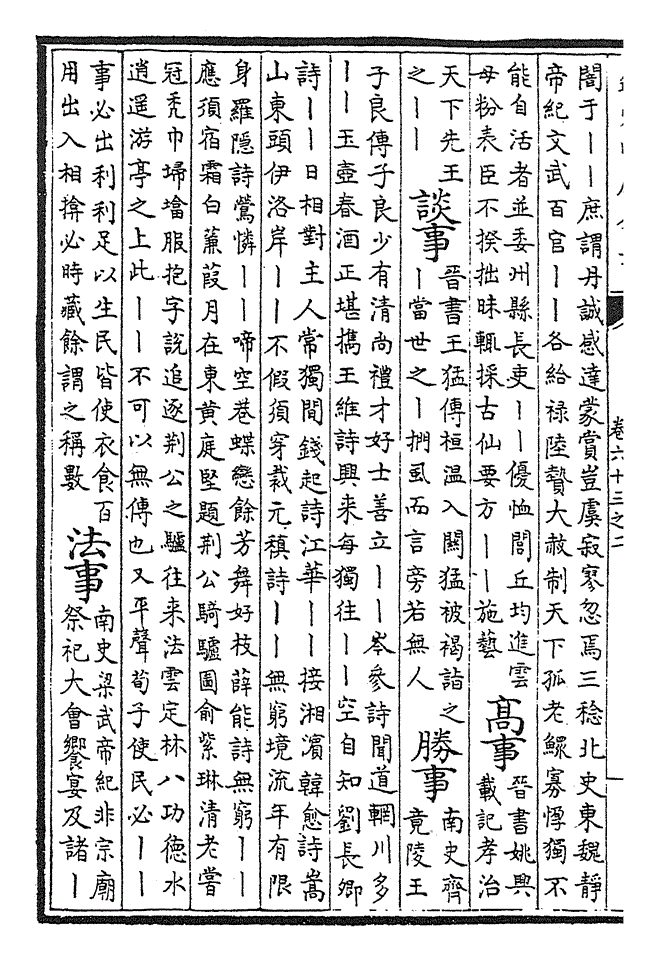 卷六十三之二
閤于丨丨庶謂丹誠感達蒙賞豈虞寂寥忽焉三稔北史東魏靜
帝紀文武百官丨丨各給祿陸贄大赦制天下孤老鰥寡惸獨不
能自活者並委州縣長吏丨丨優恤閭丘均進雲
母粉表臣不揆拙昧輒採古仙要方丨丨施藝
高事
晉書姚興
載記孝治
天下先王
之丨丨
談事
晉書王猛傳桓温入關猛被褐詣之
丨當世之丨捫虱而言旁若無人
勝事
南史齊
竟陵王
子良傳子良少有清尚禮才好士善立丨丨岑參詩聞道輞川多
丨丨玉壺春酒正堪擕王維詩興来每獨往丨丨空自知劉長卿
詩丨丨日相對主人常獨閒錢起詩江華丨丨接湘濱韓愈詩嵩
山東頭伊洛岸丨丨不假須穿栽元稹詩丨丨無窮境流年有限
身羅隱詩鶯憐丨丨啼空巷蝶戀餘芳舞好枝薛能詩無窮丨丨
應須宿霜白蒹葭月在東黄庭堅題荆公騎驢圖俞紫琳清老嘗
冠秃巾埽㙮服抱字說追逐荆公之驢往来法雲定林八功德水
逍遥游亭之上此丨丨不可以無傳也又平聲荀子使民必丨丨
事必出利利足以生民皆使衣食百
用出入相揜必時藏餘謂之稱數
法事
南史梁武帝紀非宗廟
祭祀大會饗宴及諸丨